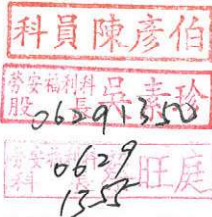 科員陳彥伯
勞安福利科
股長吳素珍
06291350
勞安福利科
科長 旺庭
0629
1355